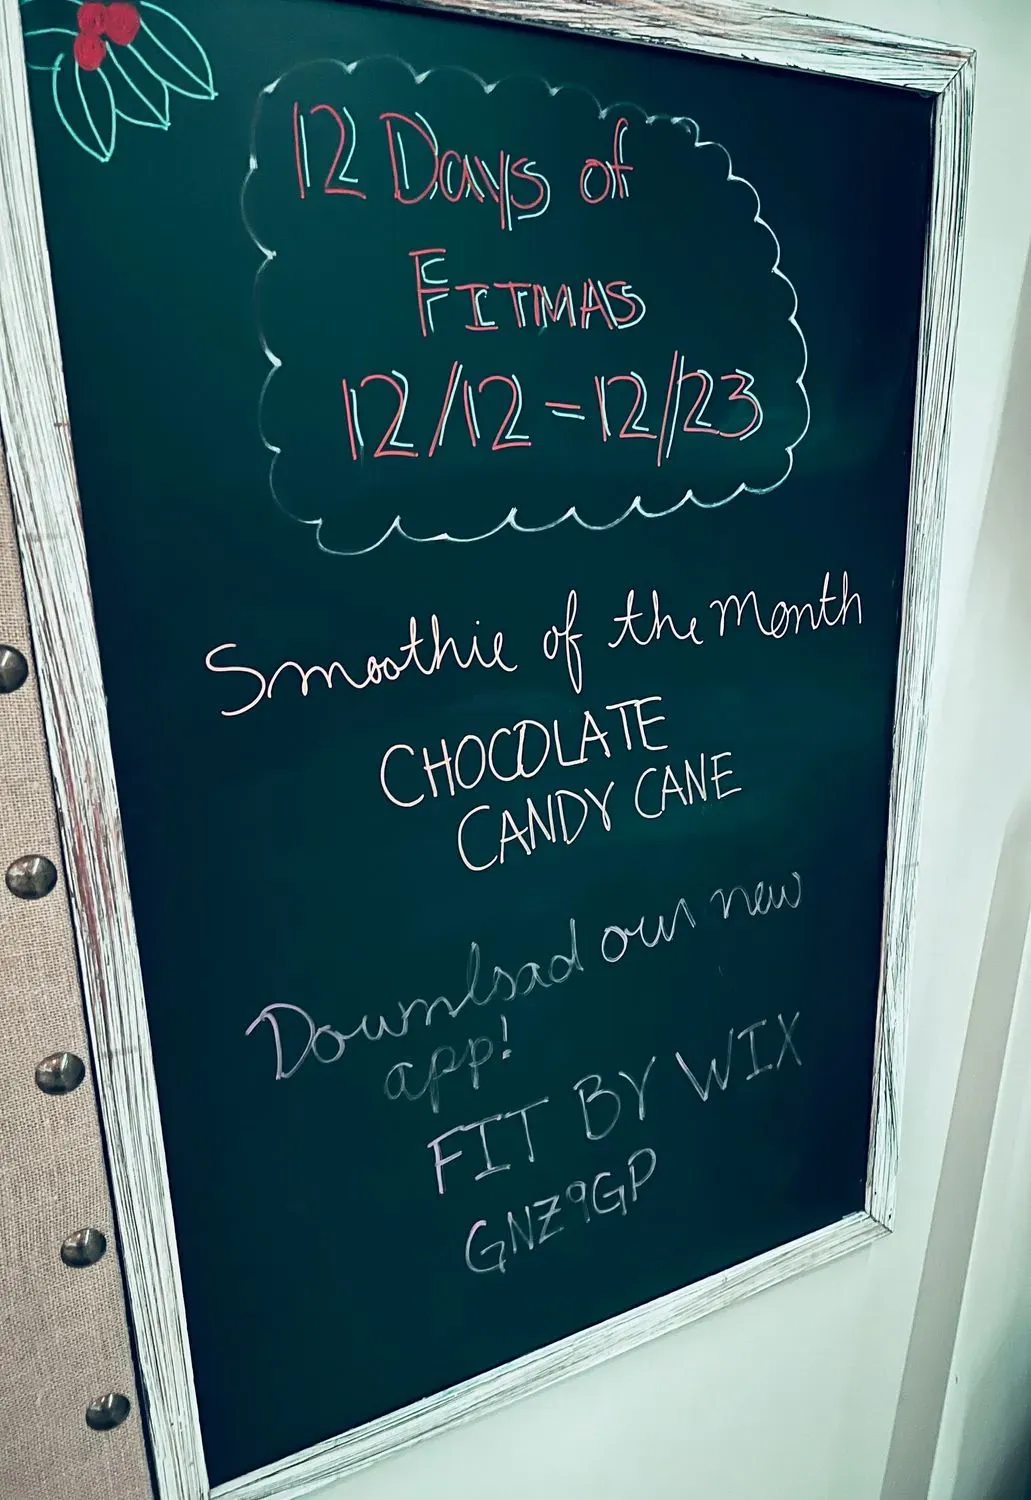 12 Days of
FITMAS
12/12 - 12/23
Smoothie of the Month
CHOCOLATE
CANDY CANE
Download our new
app!
FIT BY WIX
GNZ9GP